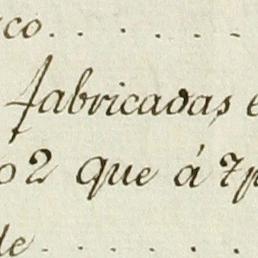 co. . . . . .
fabricadas e
02 que á 7p
de. . . . . .